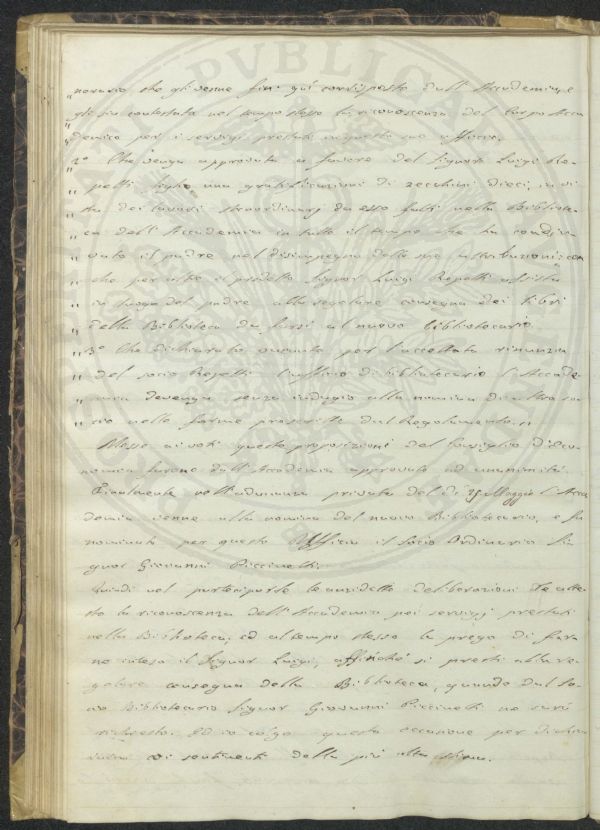 „ norario che gli venne fin qui corrisposto dall'Accademia, e
„ gli sia contestata nel tempo stesso la riconoscenza del Corpo Acca
„ demico per i servigi prestati in questo suo officio.
„ 2° Che venga approvata a favore del Signor Luigi Re-
„ petti figlio una gratificazione di zecchini dieci, in vi
„ sta dei lavori straordinarj da esso fatti nella Bibliote-
„ ca dell'Accademia in tutto il tempo che ha coadju
„ vato il padre nel disimpegno delle sue attribuzioni; con
„ che per altro il predetto Signor Luigi Repetti assista
„ in luogo del padre alla regolare consegna dei libri
„ della Biblioteca da farsi al nuovo bibliotecario
„ 3° Che dichiarato vacante per l'accettata rinunzia
„ del socio Repetti l'uffizio di bibliotecario l'Accade
„ mia devenga senza indugio alla nomina di altro so-
„ cio nelle forme prescritte dal Regolamento. „
Messe ai voti queste proposizioni del Consiglio d'Eco-
nomia furono dall'Accademia approvate ad unanimità.
Finalmente nell'adunanza privata del dì Maggio l'Acca
demia venne alla nomina del nuovo Bibliotecario, e fu
nominato per questo Ufficio il Socio Ordinario Si
gnor Giovanni Piccinelli.
Quindi nel parteciparle le anzidette deliberazioni Le atte-
sto la riconoscenza dell'Accademia pei servigj prestati
nella Biblioteca; ed al tempo stesso la prego di far
ne inteso il Signor Luigi, affinché si presti alla re-
golare consegna della Biblioteca, quando dal nuo
vo Bibliotecario Signor Giovanni Piccinelli ne sarà
richiesto. Ed io colgo questa occasione per
i sentimenti della più alta stima.
PVBLICA